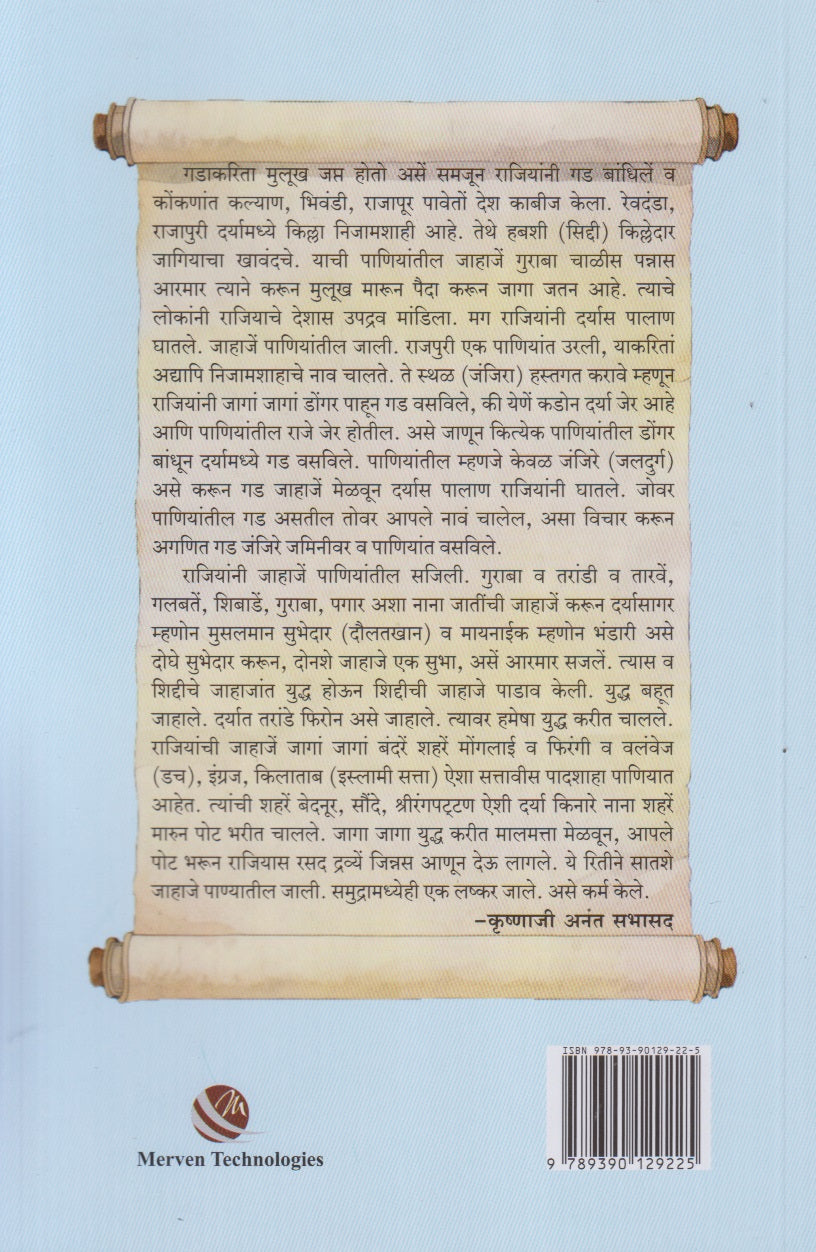 गडाकरिता मुलूख जप्त होतो असें समजून राजियांनी गड बांधिलें व
कोंकणांत कल्याण, भिवंडी, राजापूर पावेतों देश काबीज केला. रेवदंडा,
राजापुरी दर्यामध्ये किल्ला निजामशाही आहे. तेथे हबशी (सिद्दी) किल्लेदार
जागियाचा खावंदचे. याची पाणियांतील जाहाजें गुराबा चाळीस पन्नास
आरमार त्याने करून मुलूख मारून पैदा करून जागा जतन आहे. त्याचे
लोकांनी राजियाचे देशास उपद्रव मांडिला. मग राजियांनी दर्यास पालाण
घातले. जाहाजें पाणियांतील जाली. राजपुरी एक पाणियांत उरली, याकरितां
अद्यापि निजामशाहाचे नाव चालते. ते स्थळ (जंजिरा) हस्तगत करावे म्हणून
राजियांनी जागां जागां डोंगर पाहून गड वसविले, की येणें कडोन दर्या जेर आहे
आणि पाणियांतील राजे जेर होतील. असे जाणून कित्येक पाणियांतील डोंगर
बांधून दर्यामध्ये गड वसविले. पाणियांतील म्हणजे केवळ जंजिरे (जलदुर्ग)
असे करून गड जाहाजें मेळवून दर्यास पालाण राजियांनी घातले. जोवर
पाणियांतील गड असतील तोवर आपले नावं चालेल, असा विचार करून
अगणित गड जंजिरे जमिनीवर व पाणियांत वसविले.
राजियांनी जाहाजें पाणियांतील सजिली. गुराबा व तरांडी व तारवें,
गलबतें, शिबाडें, गुराबा, पगार अशा नाना जातींची जाहाजें करून दर्यासागर
म्हणोन मुसलमान सुभेदार (दौलतखान) व मायनाईक म्हणोन भंडारी असे
दोघे सुभेदार करून, दोनशे जाहाजे एक सुभा, असें आरमार सजलें. त्यास व
शिद्दीचे जाहाजांत युद्ध होऊन शिद्दीची जाहाजे पाडाव केली. युद्ध बहूत
जाहाले. दर्यात तरांडे फिरोन असे जाहाले. त्यावर हमेषा युद्ध करीत चालले.
राजियांची जाहाजें जागां जागां बंदरें शहरें मोंगलाई व फिरंगी व वलंवेज
(डच), इंग्रज, किलाताब (इस्लामी सत्ता) ऐशा सत्तावीस पादशाहा पाणियात
आहेत. त्यांची शहरें बेदनूर, सौंदे, श्रीरंगपट्टण ऐशी दर्या किनारे नाना शहरें
मारुन पोट भरीत चालले. जागा जागा युद्ध करीत मालमत्ता मेळवून, आपले
पोट भरून राजियास रसद द्रव्यें जिन्नस आणून देऊ लागले. ये रितीने सातशे
जाहाजे पाण्यातील जाली. समुद्रामध्येही एक लष्कर जाले. असे कर्म केले.
–कृष्णाजी अनंत सभासद
ISBN 978-93-90129-22-5
9 789390 129225
M
Merven Technologies